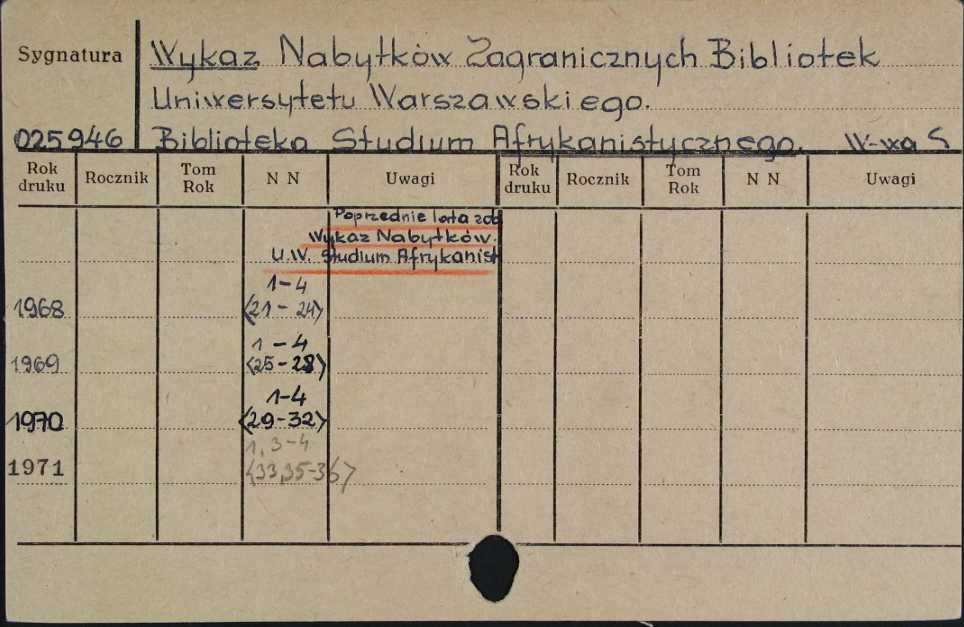 Sygnatura
Wykaz Nabytków Zagranicznych Bibliotek
Uniwersytetu Warszawskiego.
025946 Biblioteka Studium Afrykanistycznego. W-wa S
Rok druku Rocznik Tom Rok N N Uwagi Rok druku Rocznik Tom Rok N N Uwagi
Poprzednie lata zob
Wykaz Nabytków.
U.W. Studium Afrykanist
1-4
1968 <21-24>
1-4
1969 <25-28>
1-4
1970 <29-32>
1, 3-4
1971 <33,35-36>